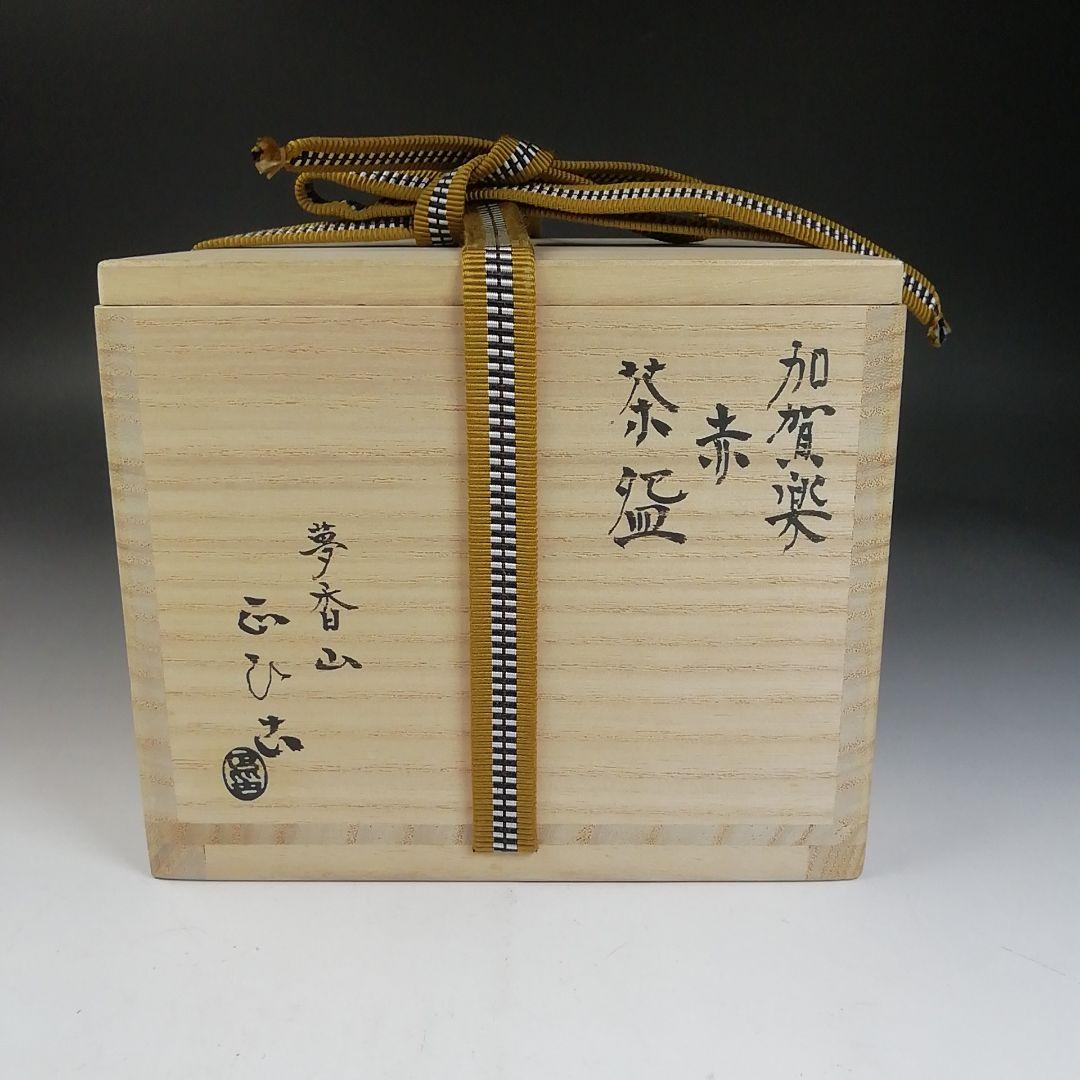 加賀楽
赤
茶盌
夢香山
正ひこ